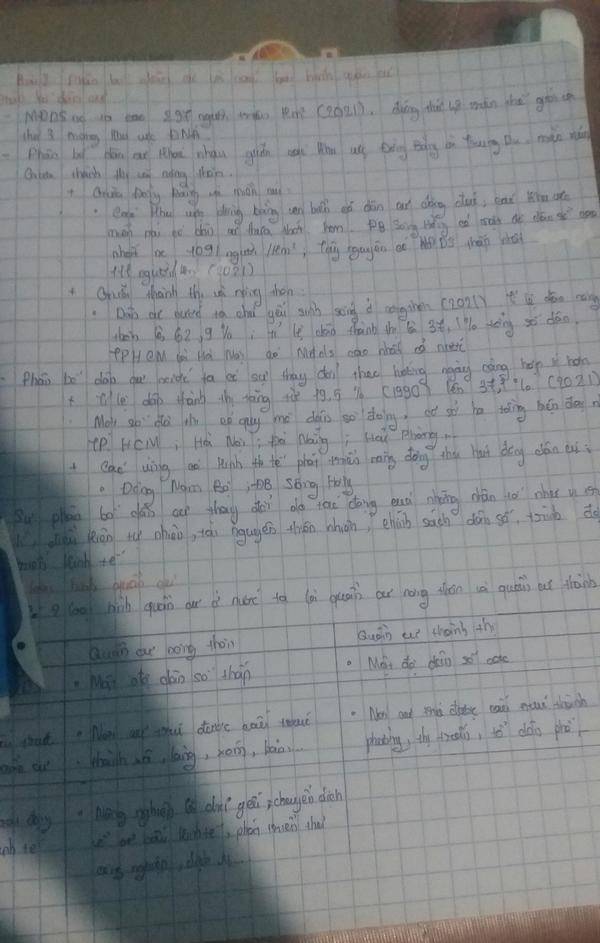 Bài 2 Phân bố dân cư và các loại hình quần cư
bố dân cư
- MĐDS nc ta cao 297 người km² (2021), đứng thứ thế giới và
thứ 3 trong khu vực ĐNA
- Phân bố dân cư khác nhau giữa các khu vực Đồng Bằng và Trung Du - miền núi
Giữa thành thị và nông thôn.
+ Giữa Đồng Bằng và miền núi:
• Các khu vực đồng bằng ven biển có dân cư đông đúc, các khu vực
miền núi có dân cư thưa thớt hơn. ĐB Sông Hồng có mật độ dân số cao
nhất nc 1091 người/km², Tây nguyên có MĐDS thấp nhất
111 người/km² (2021)
+ Giữa thành thị và nông thôn:
• Dân cư nước ta chủ yếu sinh sống ở nông thôn (2021) tỉ lệ dân nông
thôn là 62,9%; tỉ lệ dân thành thị là 37,1% tổng số dân.
TPHCM và Hà Nội có Mđds cao nhất cả nước
- Phân bố dân cư nước ta có sự thay đổi theo hướng ngày càng hợp lí hơn
+ Tỉ lệ dân thành thị tăng từ 19,5% (1990) lên 37,1% (2021)
Một số đô thị có quy mô dân số đông, cơ sở hạ tầng hiện đại
TP HCM; Hà Nội; Đà Nẵng; Hải Phòng,...
+ Các vùng có kinh tế phát triển năng động thu hút đông dân cư:
• Đông Nam Bộ; ĐB Sông Hồng
Sự phân bố dân cư thay đổi do tác động của những nhân tố như vị
điều kiện tự nhiên, tài nguyên thiên nhiên, chính sách dân số, trình độ
kinh tế
loại hình quần cư
2 loại hình quần cư ở nước ta là quần cư nông thôn và quần cư thành
Quần cư nông thôn
Quần cư thành thị
• Mật độ dân số thấp
• Mật độ dân số cao
• Nơi cư trú được cấu trúc
thành xã, làng, xóm, bản,...
• Nơi cư trú được cấu trúc thành
phường, thị trấn, tổ dân phố,...
động
kinh tế
• Nông nghiệp là chủ yếu; chuyển dịch
về cơ cấu kinh tế, phát triển thêm
công nghiệp, dịch vụ...